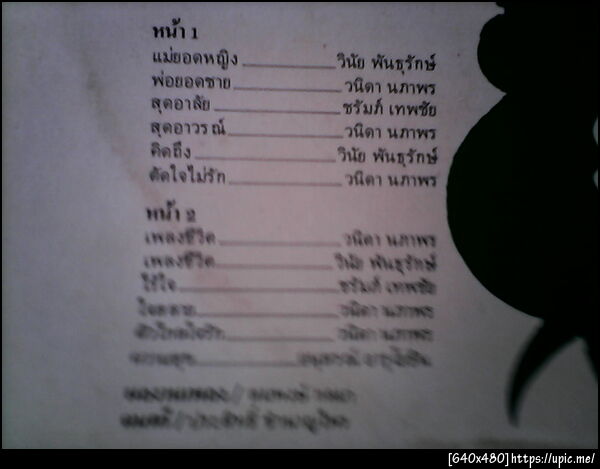 หน้า 1
แม่ยอดหญิง วินัย พันธุรักษ์
พ่อยอดชาย วนิดา นภาพร
สุดอาลัย ชรัมภ์ เทพชัย
สุดอาวรณ์ วนิดา นภาพร
คิดถึง วินัย พันธุรักษ์
ตัดใจไม่รัก วนิดา นภาพร
หน้า 2
เพลงชีวิต วนิดา นภาพร
เพลงชีวิต วินัย พันธุรักษ์
ไร้ใจ ชรัมภ์ เทพชัย
วนิดา นภาพร
วนิดา นภาพร
[640x480]https://upic.me/